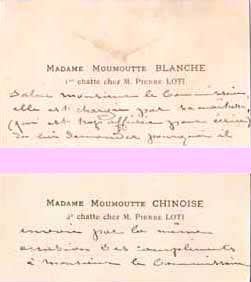 MADAME MOUMOUTTE BLANCHE
1re chatte chez M. PIERRE LOTI
Salue monsieur le Commissaire,
elle est chargée par sa maîtresse
(qui est trop affairée pour écrire)
de lui demander pourquoi il
MADAME MOUMOUTTE CHINOISE
2e chatte chez M. PIERRE LOTI
envoie par la même
occasion des compliments
à monsieur le Commissaire